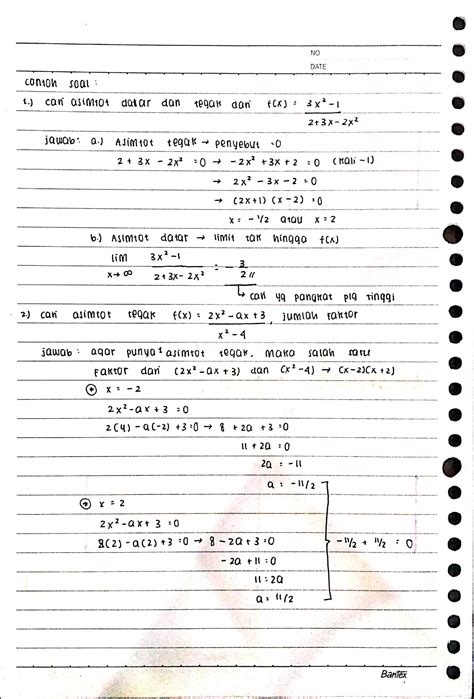 NO
DATE
contoh soal :
1.) cari asimtot datar dan tegak dari f(x) = 3x² - 1 / 2 + 3x - 2x²
jawab: a.) Asimtot tegak → penyebut = 0
2 + 3x - 2x² = 0 → -2x² + 3x + 2 = 0 (kali -1)
→ 2x² - 3x - 2 = 0
→ (2x+1) (x-2) = 0
x = -1/2 atau x = 2
b.) Asimtot datar → limit tak hingga f(x)
lim x→∞ 3x² - 1 / 2 + 3x - 2x² = - 3 / 2 //
↳ cari yg pangkat plg tinggi
2.) cari asimtot tegak f(x) = 2x² - ax + 3 / x² - 4 , jumlah faktor
jawab : agar punya 1 asimtot tegak, maka salah satu
faktor dari (2x² - ax + 3) dan (x² - 4) → (x-2)(x+2)
→ x = -2
2x² - ax + 3 = 0
2(4) - a(-2) + 3 = 0 → 8 + 2a + 3 = 0
11 + 2a = 0
2a = -11
a = -11/2
→ x = 2
2x² - ax + 3 = 0
8(2) - a(2) + 3 = 0 → 8 - 2a + 3 = 0
-11/2 + 11/2 = 0
-2a + 11 = 0
11 = 2a
a = 11/2
Bantex